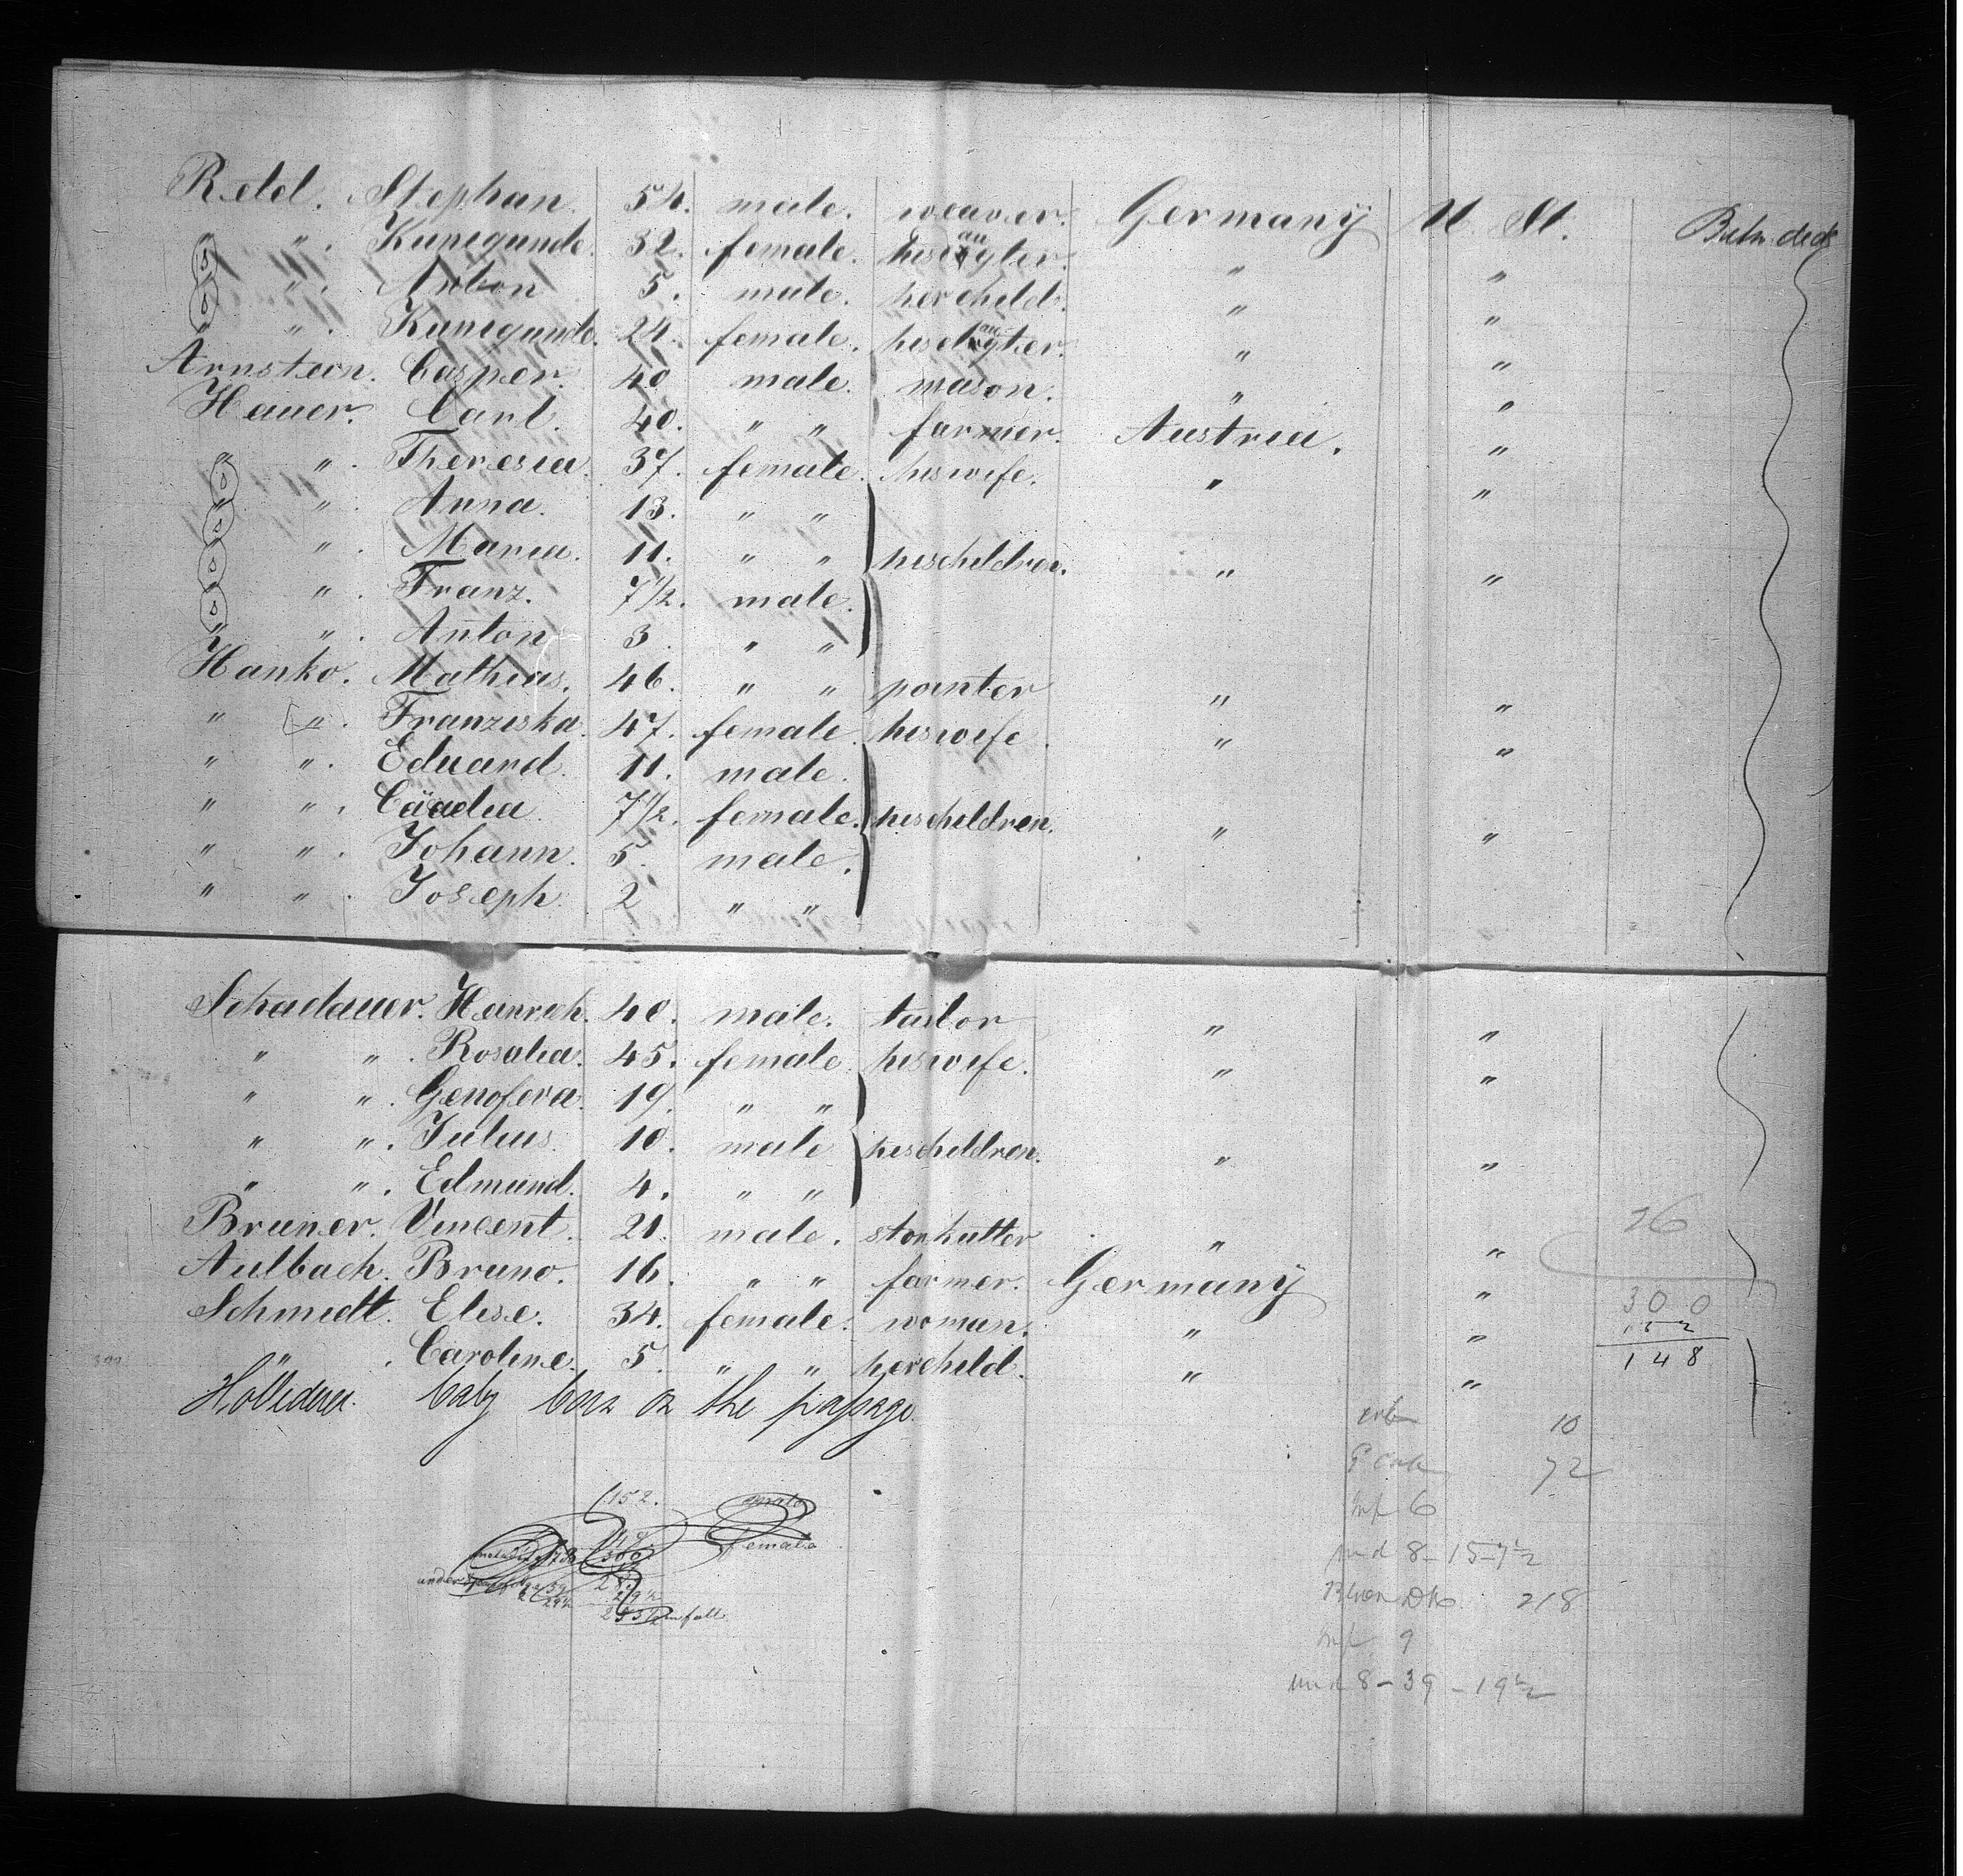 Redel. Stephan. 54. male. weaver. Germany U. St. Betw. deck
" ". Kunigunde. 32. female. hisdaugter. " "
" ". Anton 5. male. herchild. " "
" ". Kunigunde. 24. female. hisdaugter. " "
Arnstein. Casper. 40 male. mason. " "
Hauer. Carl. 40. " " farmer. Austria. "
" ". Theresia. 37. female. hiswife. " "
" ". Anna. 13. " "
" ". Maria. 11. " " hischildren. " "
" ". Franz. 7 1/2. male.
" ". Anton 3. " "
Hanko. Mathias. 46. " " painter " "
" ". Franziska. 47. female. hiswife. " "
" ". Eduard. 11. male.
" ". Cäcelia. 7 1/2. female. hischildren. " "
" ". Johann. 5. male.
" ". Joseph. 2 " "
Schadauer. Heinrich. 40. male. tailor " "
" ". Rosalia. 45. female hiswife. " "
" ". Genofeva. 19. " "
" ". Julius. 10. male hischildren. " "
" ". Edmund. 4. " "
Bruner. Vincent. 21. male. stonkutter " " 26
Aulbach. Bruno. 16. " " farmer. Germany "
Schmidt. Elise. 34. female. woman. " " 300
" . Caroline. 5. " " herchild. " " 152
148
baby born on the passage.
10
72
152. male
inf 6
female
und 8 - 15 - 7 1/2
under
218
inf 9
und 8 - 39 - 19 1/2